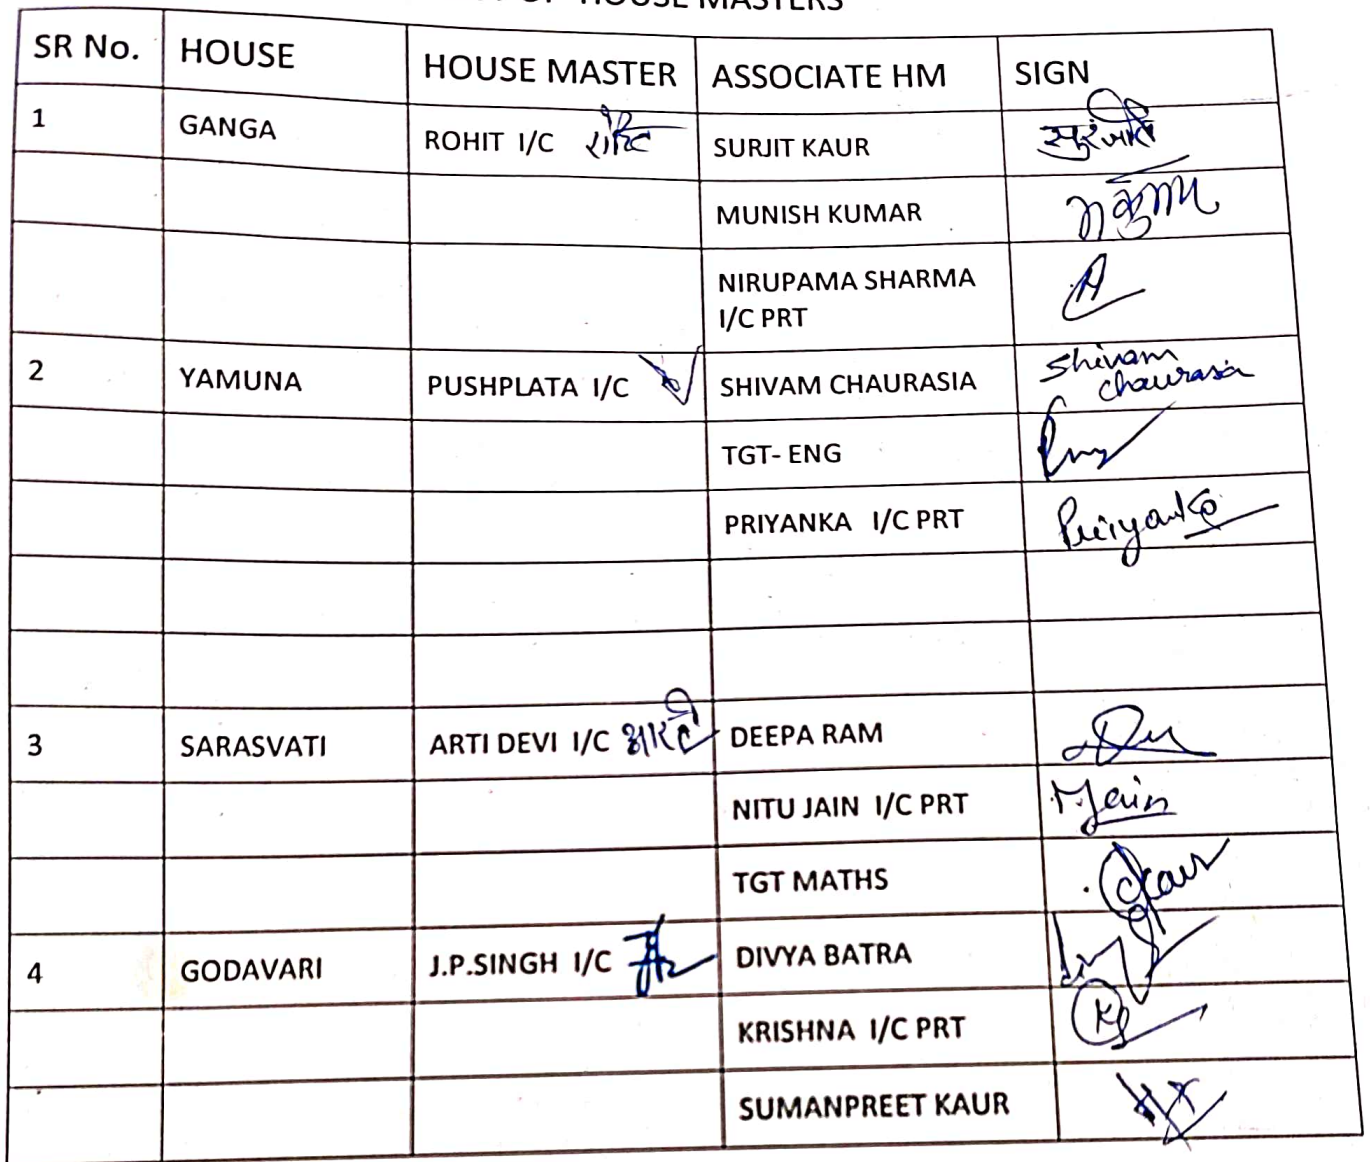 HOUSE MASTERS
SR No. HOUSE HOUSE MASTER ASSOCIATE HM SIGN
1 GANGA ROHIT I/C रोहित SURJIT KAUR सुरजीत
MUNISH KUMAR
NIRUPAMA SHARMA
I/C PRT
2 YAMUNA PUSHPLATA I/C SHIVAM CHAURASIA Shivam
chaurasia
TGT- ENG
PRIYANKA I/C PRT Priyanka
3 SARASVATI ARTI DEVI I/C आरती DEEPA RAM
NITU JAIN I/C PRT N.Jain
TGT MATHS Kaur
4 GODAVARI J.P.SINGH I/C DIVYA BATRA
KRISHNA I/C PRT
SUMANPREET KAUR